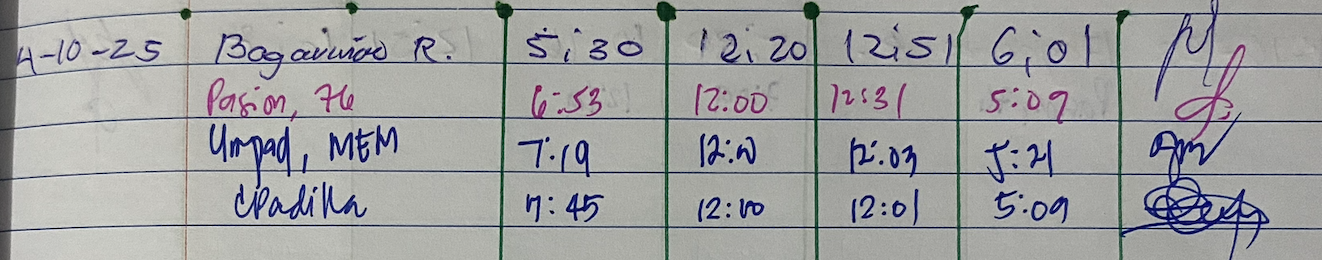 4-10-25 Bagaruinao R. 5:30 12:20 12:51 6:01
Pasion, 76 6:53 12:00 12:31 5:09
Umpad, MEM 7:19 12:00 12:03 5:21
CPadilla 7:45 12:00 12:01 5:09